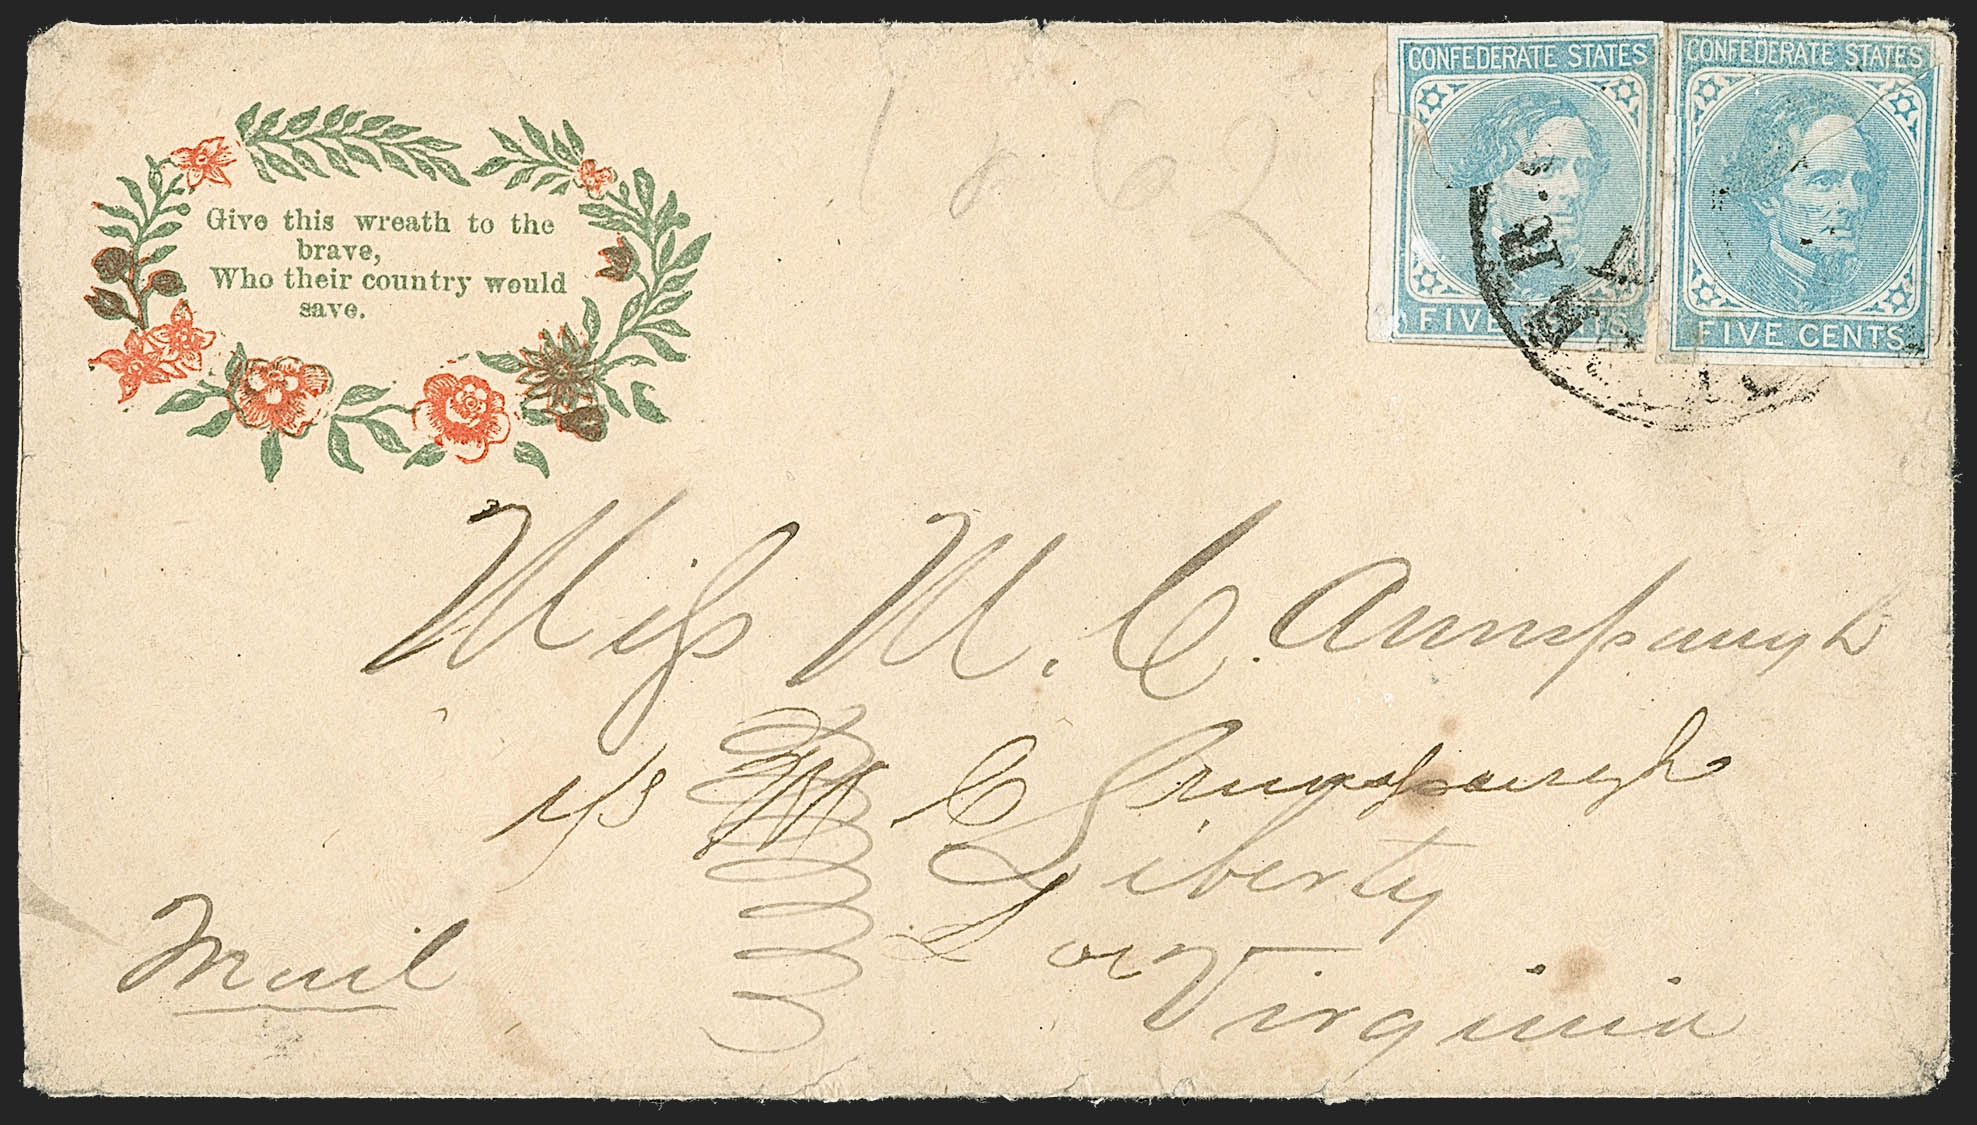 Give this wreath to the
brave,
Who their country would
save.
1862
CONFEDERATE STATES
FIVE CENTS
CONFEDERATE STATES
FIVE CENTS
Miss M. C. Aunspaugh
M C Aunspaugh
Liberty
Virginia
Mail